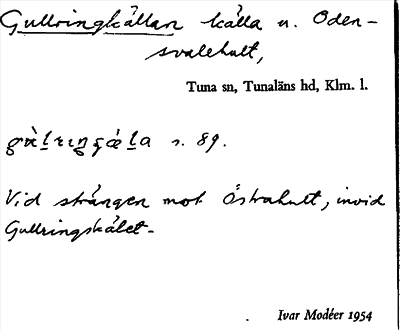 Gullringkällan källa u. Oden-
svalehult,
Tuna sn, Tunaläns hd, Klm. l.
s. 89.
Vid stängen mot Östrahult, invid
Gullringskälet.
Ivar Modéer 1954